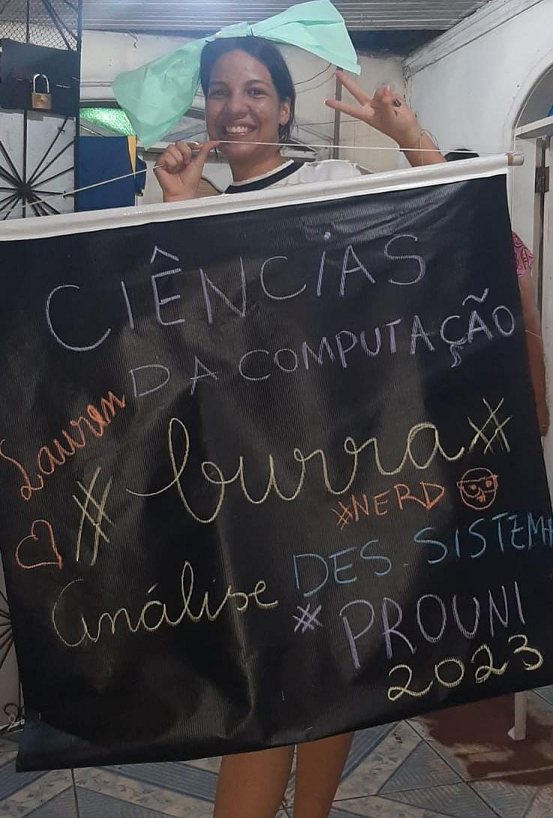 CIÊNCIAS
DA COMPUTAÇÃO
Lauren
# burra #
#NERD
Análise DES. SISTEM
# PROUNI
2023